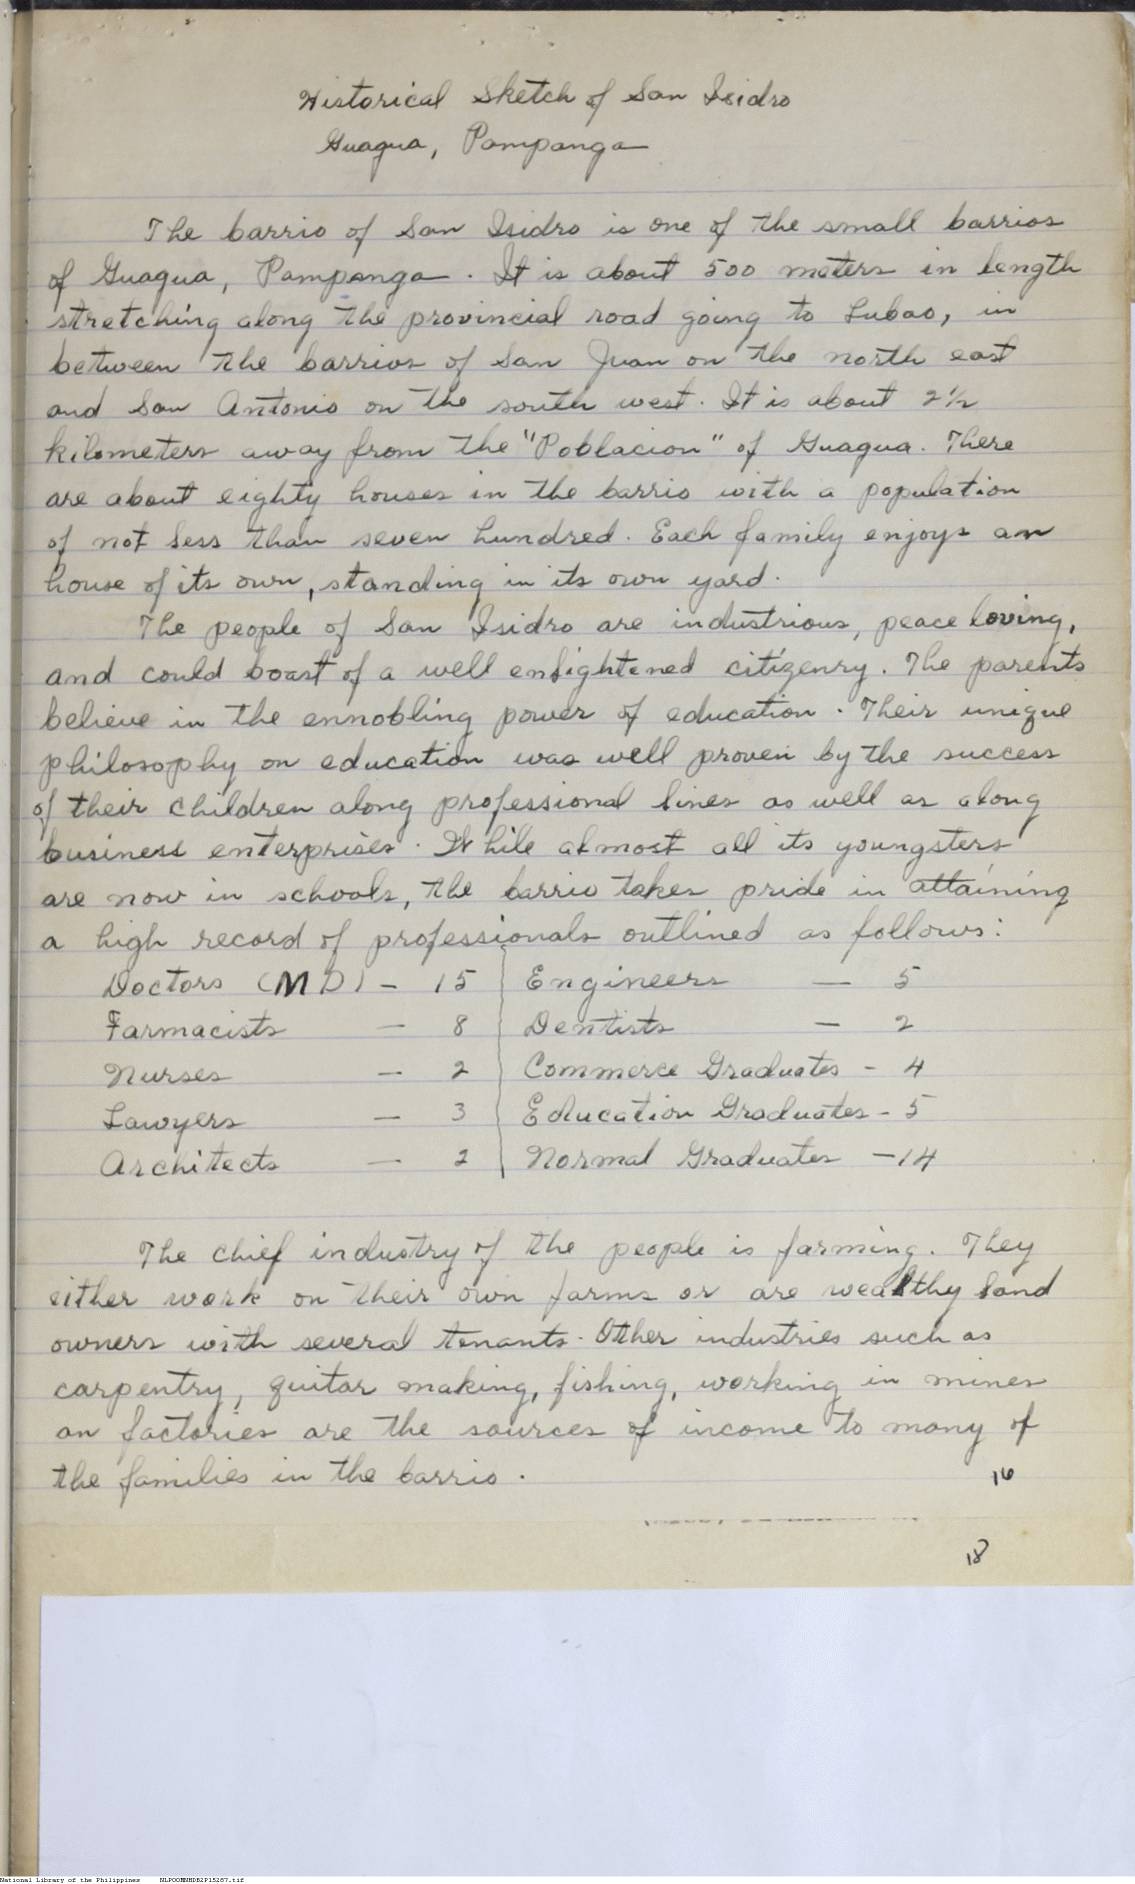 Historical Sketch of San Isidro
Guagua, Pampanga
The barrio of San Isidro is one of the small barrios
of Guagua, Pampanga. It is about 500 meters in length
stretching along the provincial road going to Lubao, in
between the barrios of San Juan on the north east
and San Antonio on the south west. It is about 2½
kilometers away from the "Poblacion" of Guagua. There
are about eighty houses in the barrio with a population
of not less than seven hundred. Each family enjoys an
house of its own, standing in its own yard.
The people of San Isidro are industrious, peace loving,
and could boast of a well enlightened citizenry. The parents
believe in the ennobling power of education. Their unique
philosophy on education was well proven by the success
of their children along professional lines as well as along
business enterprises. While almost all its youngsters
are now in schools, the barrio takes pride in attaining
a high record of professionals outlined as follows:
Doctors (MD) - 15 Engineers - 5
Farmacists - 8 Dentists - 2
Nurses - 2 Commerce Graduates - 4
Lawyers - 3 Education Graduates - 5
Architects - 2 Normal Graduates - 14
The chief industry of the people is farming. They
either work on their own farms or are wealthy land
owners with several tenants. Other industries such as
carpentry, guitar making, fishing, working in mines
on factories are the sources of income to many of
the families in the barrio.
16
18
National Library of the Philippines NLPOOMNHDB2P15287.tif